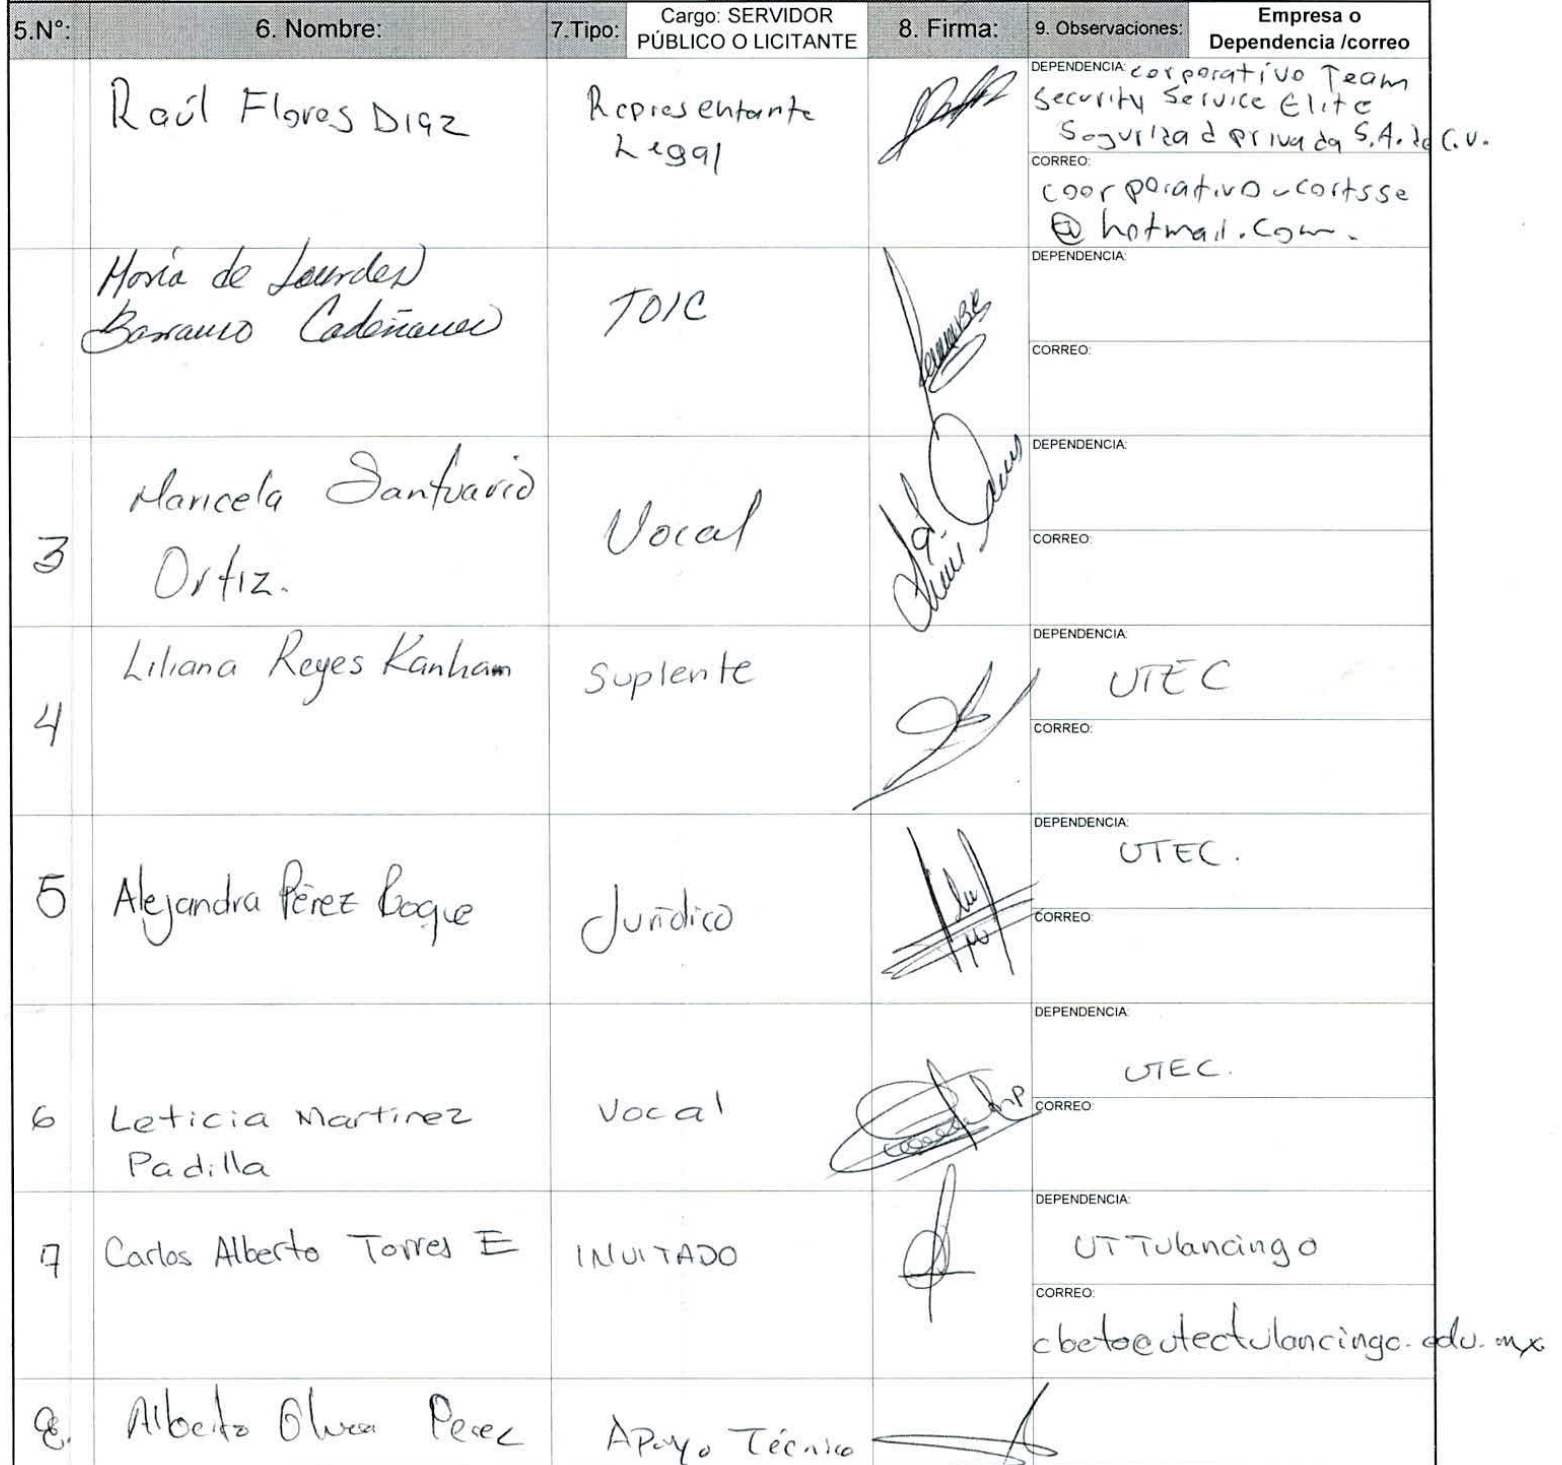 5.N°: 6. Nombre: 7.Tipo: Cargo: SERVIDOR PÚBLICO O LICITANTE 8. Firma: 9. Observaciones: Empresa o Dependencia /correo
Raúl Flores Diaz
Representante
Legal
DEPENDENCIA: corporativo Team
Security Service Elite
Seguridad privada S.A. de C.V.
CORREO:
coorporativo_cortsse
@hotmail.com.
María de Lourdes
TOIC
DEPENDENCIA:
CORREO:
3
Maricela Santuario
Ortiz.
Vocal
DEPENDENCIA:
CORREO:
4
Liliana Reyes Kanham
Suplente
DEPENDENCIA:
UTEC
CORREO:
5
Alejandra Pérez
Jurídico
DEPENDENCIA:
UTEC.
CORREO:
6
Leticia Martinez
Padilla
Vocal
DEPENDENCIA:
UTEC.
CORREO:
7
Carlos Alberto Torres E
INVITADO
DEPENDENCIA:
UT Tulancingo
CORREO:
cbeto@utectulancingo.edu.mx
8.
Alberto Perez
Apoyo Técnico